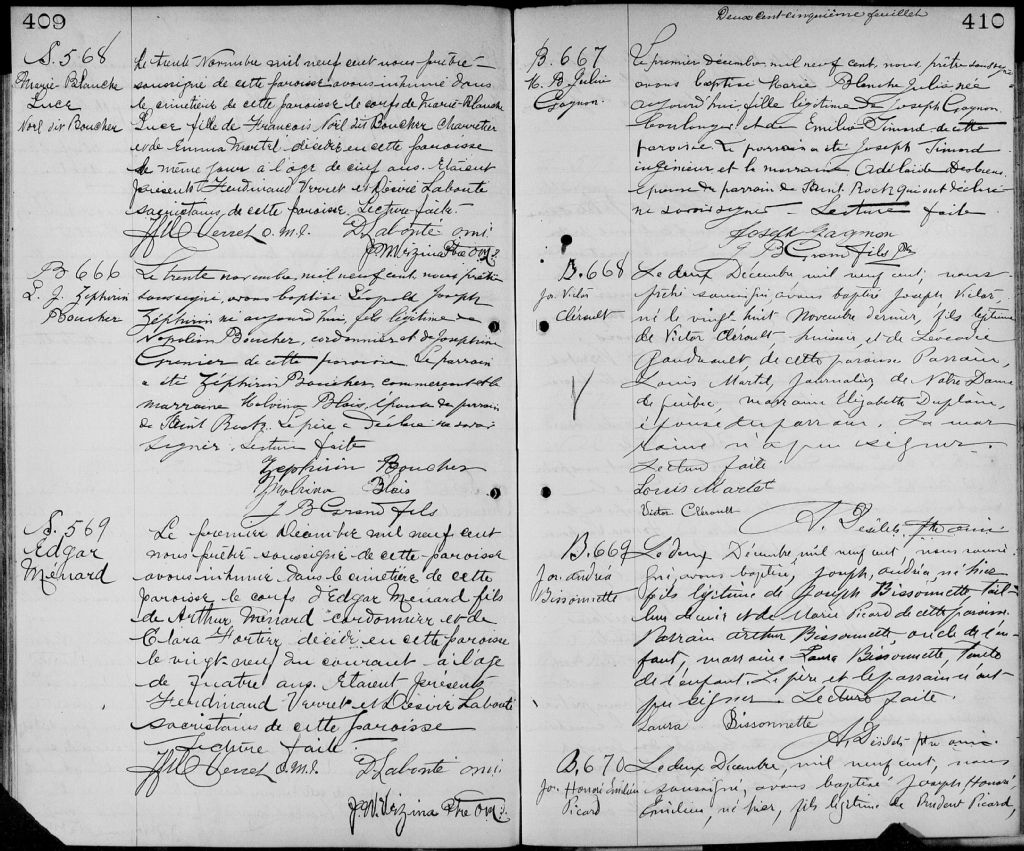 409
S. 568
Marie Blanche
Luce
Noël dit Boucher
Le trente Novembre mil neuf cent nous prêtre
soussigné de cette paroisse avons inhumé dans
le cimetière de cette paroisse le corps de Marie-Blanche
Luce fille de François Noël dit Boucher Charretier
et de Emma Martel décédée en cette paroisse
le même jour à l'âge de cinq ans. Etaient
présents Ferdinand Verret et Désiré Labonté
sacristains de cette paroisse. Lecture faite.
Verret O.M.I. D Labonté omi
Ptre O.M.I.
B 666
L. J. Zéphirin
Boucher
Le trente novembre, mil neuf cent, nous prêtre
soussigné, avons baptisé Léopold Joseph
Zéphirin né aujourd'hui, fils légitime de
Napoléon Boucher, cordonnier et de Joséphine
Grenier de cette paroisse. Le parrain
a été Zéphirin Boucher, commerçant et la
marraine Malvina Blais, épouse du parrain
de Saint Roch. Le père a déclaré ne savoir
signer. Lecture faite
Zephirin Boucher
Malvina Blais
J B Grand fils
S. 569
Edgar
Ménard
Le premier Décembre mil neuf cent
nous prêtre soussigné de cette paroisse
avons inhumé dans le cimetière de cette
paroisse le corps d'Edgar Ménard fils
de Arthur Ménard cordonnier et de
Clara Fortier décédé en cette paroisse
le vingt-neuf du courant à l'âge
de quatre ans. Etaient présents
Ferdinand Verret et Désiré Labonté
sacristains de cette paroisse
Lecture faite.
Verret O.M.I. D Labonté omi
Ptre O.M.I.
Deux cent cinquième feuillet
410
B. 667
M. B. Julia
Gagnon.
Le premier décembre mil neuf cent, nous, prêtre soussigné
avons baptisé Marie Blanche Julia née
aujourd'hui, fille légitime de Joseph Gagnon,
boulanger et de Emilia Simard de cette
paroisse. Le parrain a été Joseph Simard
ingénieur et la marraine Adélaïde
épouse du parrain de Saint Roch qui ont déclaré
ne savoir signer. Lecture faite
Joseph Gagnon
J B Grand fils Ptre
B. 668
Jos. Victor
Cléroult
Le deux Décembre mil neuf cent, nous
prêtre soussigné, avons baptisé Joseph Victor,
né le vingt huit Novembre dernier, fils légitime
de Victor Cléroult huissier et de Léocadie
de cette paroisse. Parrain,
Louis Martel, journalier de Notre Dame
de Québec, marraine Elizabeth Duplain,
épouse du parrain. La mar
raine n'a pu signer.
Lecture faite
Louis Martel
Victor Cléroult
A. Désilets, ptre omi
B. 669
Jos. Andréa
Bissonnette
Le deux Décembre, mil neuf cent, nous soussi
gné, avons baptisé, Joseph, Andréa, né hier
fils légitime de Joseph Bissonnette tail-
leur de cuir et de Marie Picard de cette paroisse.
Parrain Arthur Bissonnette oncle de l'en-
fant, marraine Laura Bissonnette, tante
de l'enfant. Le père et le parrain n'ont
pu signer. Lecture faite.
Laura Bissonnette
A. Désilets ptre omi.
B. 670
Jos. Honoré Emilien
Picard
Le deux Décembre, mil neuf cent, nous
soussigné, avons baptisé Joseph, Honoré,
Emilien, né hier, fils légitime de Prudent Picard,